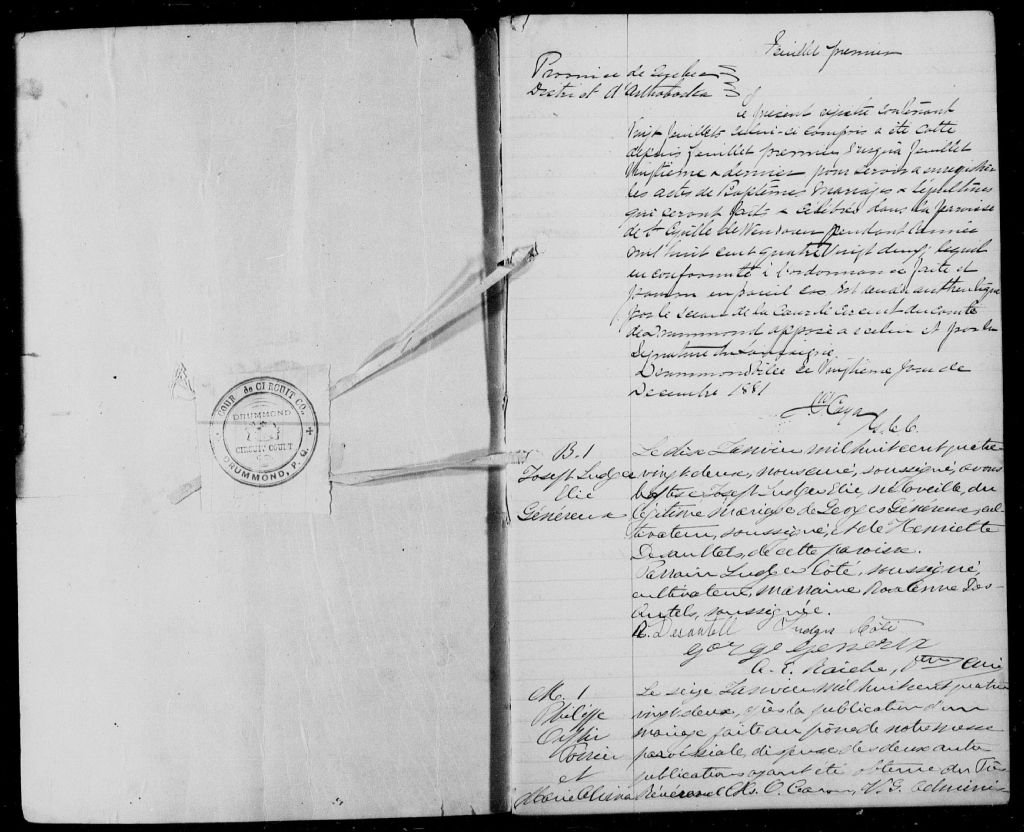 COUR de CIRCUIT CO.
DRUMMOND
CIRCUIT COURT
DRUMMOND, P. Q.
Feuillet premier
Province de Québec
District d'Arthabaska
Le présent régistre contenant
vingt feuillets celui-ci compris a été cotté
depuis feuillet premier jusqu'à feuillet
vingtième & dernier pour servir à enregistrer
les actes de Baptêmes mariages & sépultures
qui seront faits & célébrés dans la paroisse
de St Cyrille de Wendover pendant l'année
mil huit cent quatre vingt deux; lequel
en conformité à l'ordonnance faite et
pourvu en pareil cas est rendu authentique
par le sceau de la Cour de Circuit du Comté
de Drummond apposé à celui et par la
signature du
Drummondville ce Vingtième jour de
Decembre 1881
G. C. C.
B. 1
Joseph Ludger
Elie
Généreux
Le dix Janvier mil huit cent quatre
vingt deux, nous curé, soussigné, avons
baptisé Joseph Ludger Elie, né la veille, du
légitime mariage de Georges Généreux, cul-
tivateur, soussigné, et de Henriette
Desautels, de cette paroisse.
Parrain Ludger Côté, soussigné,
cultivateur, marraine Rosanna Des-
autels, soussignée.
R. Desautell Ludger Côté
George generux
A. E. Raiche, Ptre Curé
M. 1
Philippe
Poirier
et
Marie
Le seize Janvier mil huit cent quatre
vingt deux, après la publication d'un
mariage faite au prône de notre messe
paroissiale, dispense des deux autres
publications ayant été obtenue du Très
Révérend Ms. O. Caron, V. G. adminis